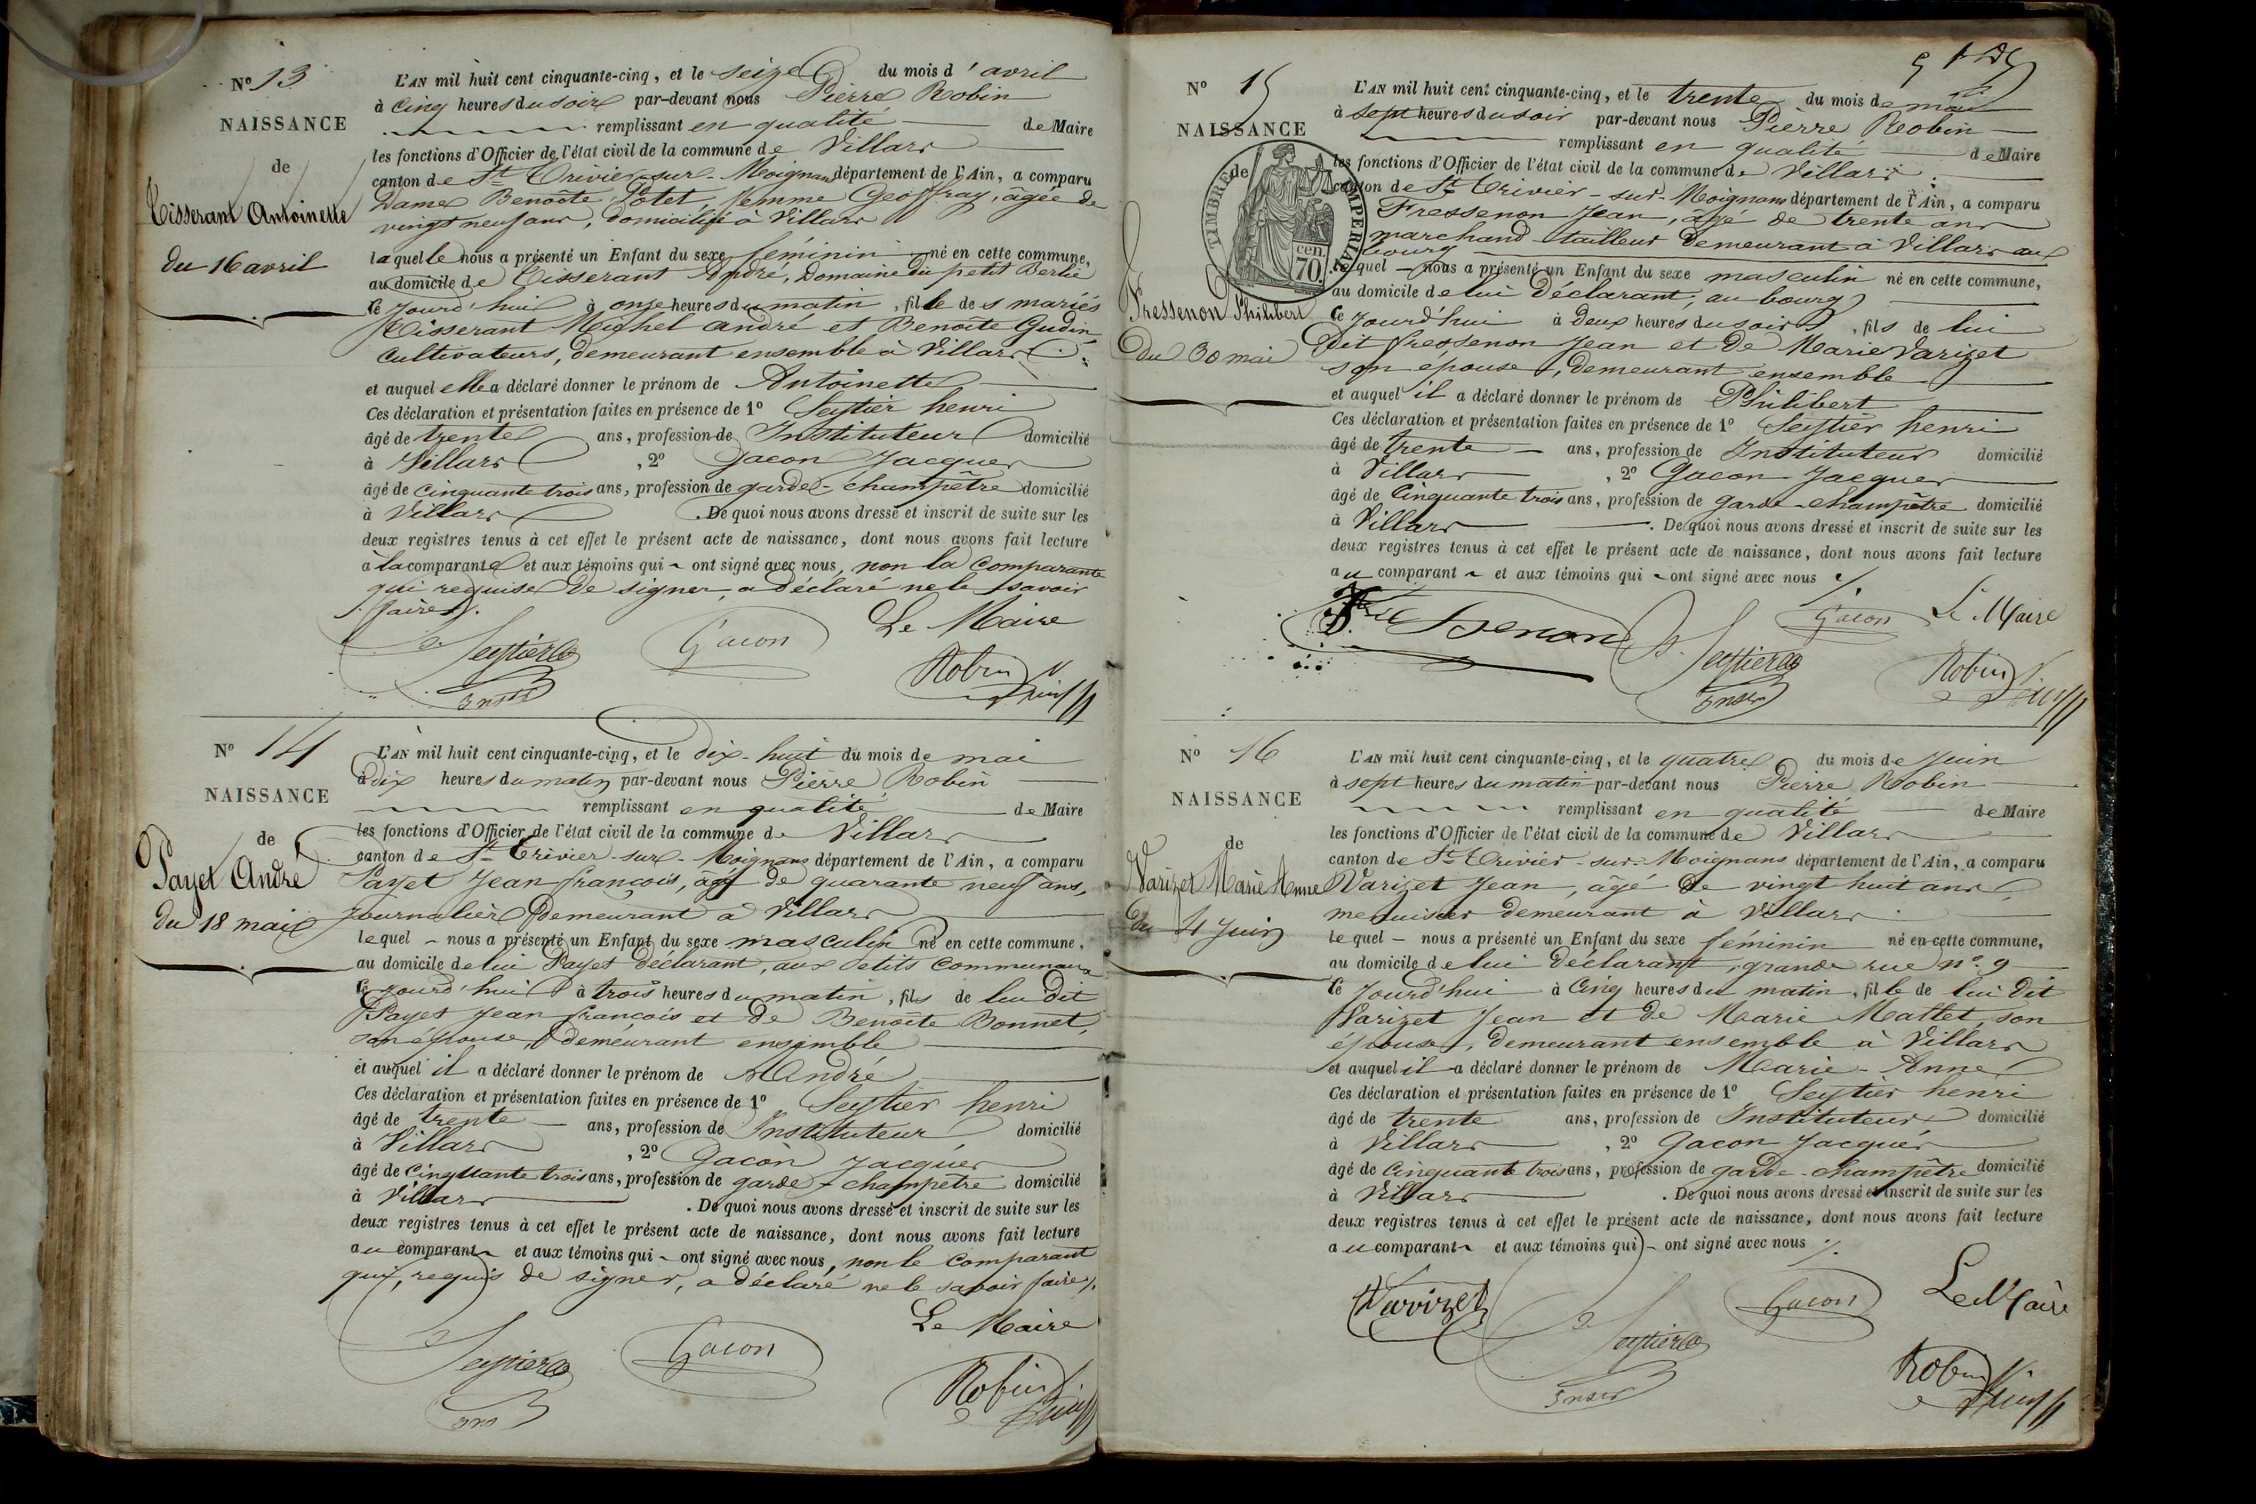 N° 13
NAISSANCE
de
Tisserant Antoinette
du 16 avril
L'AN mil huit cent cinquante-cinq, et le seize du mois d'avril
à cinq heures du soir par-devant nous Pierre Robin
remplissant en qualité de Maire
les fonctions d'Officier de l'état civil de la commune de Villars
canton de St Trivier-sur-Moignans département de l'Ain, a comparu
Dame Benoîte Potet, femme Geoffray, âgée de
vingt neuf ans, domiciliée à Villars
laquelle nous a présenté un Enfant du sexe féminin né en cette commune,
au domicile de Tisserant André, Domaine du petit Berlie
ce jourd'hui à onze heures du matin, fille de s mariés
Tisserant Michel André et Benoîte Gudin
cultivateurs, demeurant ensemble à Villars
et auquel elle a déclaré donner le prénom de Antoinette
Ces déclaration et présentation faites en présence de 1° Seytier henri
âgé de trente ans, profession de Instituteur domicilié
à Villars, 2° Gacon Jacques
âgé de cinquante trois ans, profession de garde-champêtre domicilié
à Villars. De quoi nous avons dressé et inscrit de suite sur les
deux registres tenus à cet effet le présent acte de naissance, dont nous avons fait lecture
à la comparante et aux témoins qui ont signé avec nous, non la comparante
qui requise de signer a déclaré ne le savoir
faire.
Le Maire
Seytier Gacon
Robin
Inst
N° 14
NAISSANCE
de
Payet André
du 18 mai
L'AN mil huit cent cinquante-cinq, et le dix-huit du mois de mai
à dix heures du matin par-devant nous Pierre Robin
remplissant en qualité de Maire
les fonctions d'Officier de l'état civil de la commune de Villars
canton de St Trivier-sur-Moignans département de l'Ain, a comparu
Payet Jean françois, âgé de quarante neuf ans,
journalier demeurant à Villars
lequel nous a présenté un Enfant du sexe masculin né en cette commune,
au domicile de lui Payet déclarant, aux Petits Communaux
ce jourd'hui à trois heures du matin, fils de lui dit
Payet Jean françois et de Benoîte Bonnet,
son épouse, demeurant ensemble
et auquel il a déclaré donner le prénom de André
Ces déclaration et présentation faites en présence de 1° Seytier henri
âgé de trente ans, profession de Instituteur domicilié
à Villars, 2° Gacon Jacques
âgé de cinquante trois ans, profession de garde-champêtre domicilié
à Villars. De quoi nous avons dressé et inscrit de suite sur les
deux registres tenus à cet effet le présent acte de naissance, dont nous avons fait lecture
au comparant et aux témoins qui ont signé avec nous, non le comparant
qui, requis de signer, a déclaré ne le savoir faire.
Le Maire
Seytier Gacon
Robin
N° 15
NAISSANCE
de
TIMBRE IMPERIAL
70 cen.
Fressenon Philibert
du 30 mai
L'AN mil huit cent cinquante-cinq, et le trente du mois de mai
à sept heures du soir par-devant nous Pierre Robin
remplissant en qualité de Maire
les fonctions d'Officier de l'état civil de la commune de Villars
canton de St Trivier-sur-Moignans département de l'Ain, a comparu
Fressenon Jean, âgé de trente ans
marchand tailleur demeurant à Villars au
bourg
lequel nous a présenté un Enfant du sexe masculin né en cette commune,
au domicile de lui déclarant, au bourg
ce jourd'hui à deux heures du soir, fils de lui
dit fressenon Jean et de Marie Varizet
son épouse, demeurant ensemble
et auquel il a déclaré donner le prénom de Philibert
Ces déclaration et présentation faites en présence de 1° Seytier henri
âgé de trente ans, profession de Instituteur domicilié
à Villars, 2° Gacon Jacques
âgé de cinquante trois ans, profession de garde-champêtre domicilié
à Villars. De quoi nous avons dressé et inscrit de suite sur les
deux registres tenus à cet effet le présent acte de naissance, dont nous avons fait lecture
au comparant et aux témoins qui ont signé avec nous
Gacon Le Maire
Seytier Robin
N° 16
NAISSANCE
de
Varizet Marie Anne
du 4 Juin
L'AN mil huit cent cinquante-cinq, et le quatre du mois de Juin
à sept heures du matin par-devant nous Pierre Robin
remplissant en qualité de Maire
les fonctions d'Officier de l'état civil de la commune de Villars
canton de St Trivier-sur-Moignans département de l'Ain, a comparu
Varizet Jean, âgé de vingt huit ans,
menuisier demeurant à Villars
lequel nous a présenté un Enfant du sexe féminin né en cette commune,
au domicile de lui déclarant, grande rue n° 9
ce jourd'hui à cinq heures du matin, fille de lui dit
Varizet Jean et de Marie Mattet, son
épouse, demeurant ensemble à Villars
et auquel il a déclaré donner le prénom de Marie-Anne
Ces déclaration et présentation faites en présence de 1° Seytier henri
âgé de trente ans, profession de Instituteur domicilié
à Villars, 2° Gacon Jacques
âgé de cinquante trois ans, profession de garde-champêtre domicilié
à Villars. De quoi nous avons dressé et inscrit de suite sur les
deux registres tenus à cet effet le présent acte de naissance, dont nous avons fait lecture
au comparant et aux témoins qui ont signé avec nous
Varizet Gacon Le Maire
Seytier
Robin